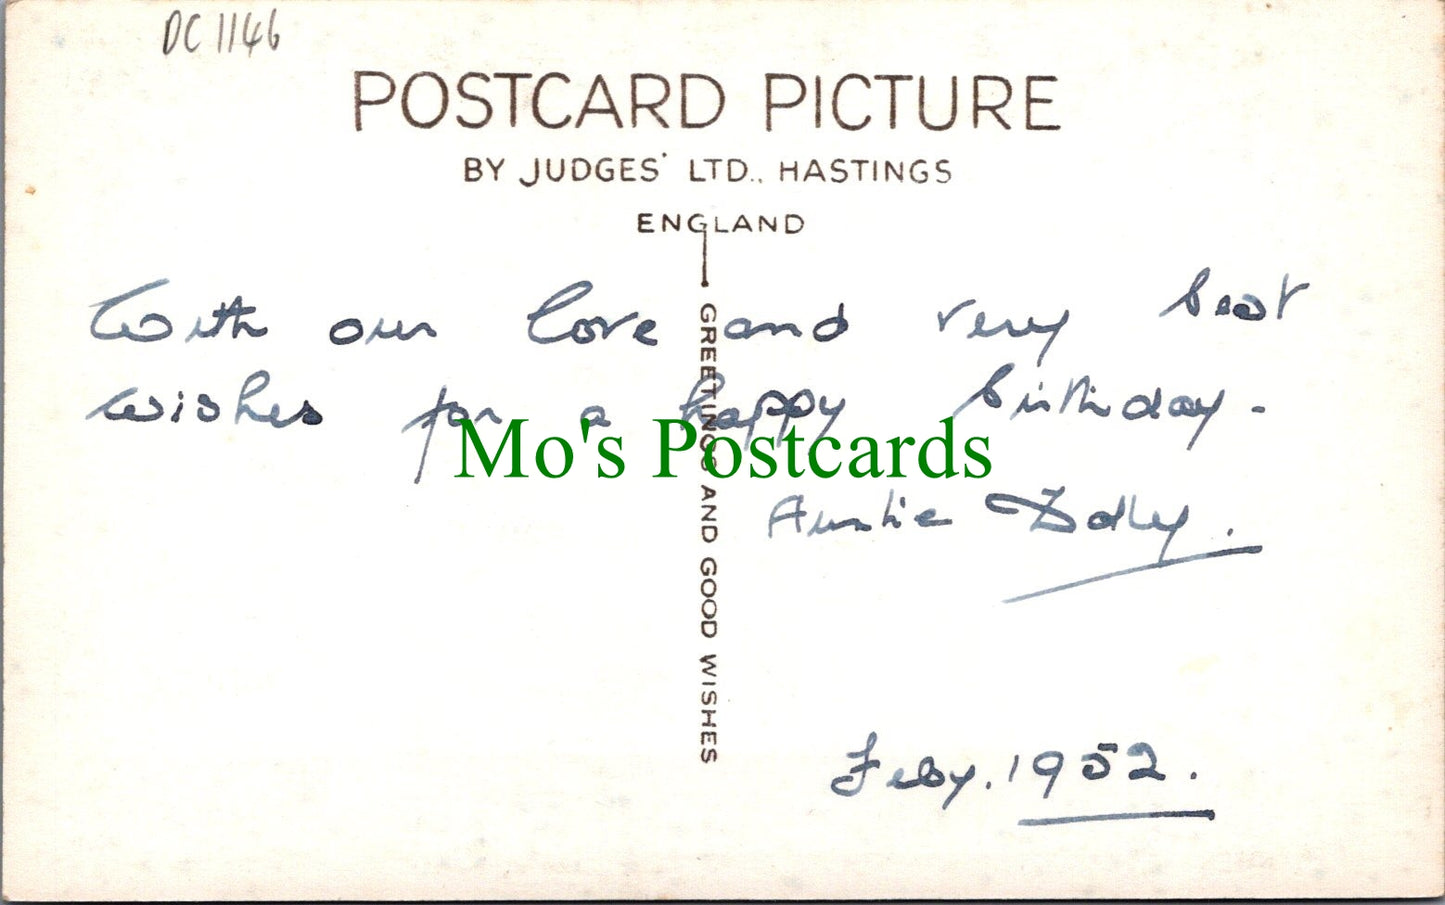 DC 1146
POSTCARD PICTURE
BY JUDGES' LTD., HASTINGS
ENGLAND
With our love and very best
wishes for a happy birthday -
Auntie Dolly.
Feby. 1952.
GREETINGS AND GOOD WISHES
Mo's Postcards